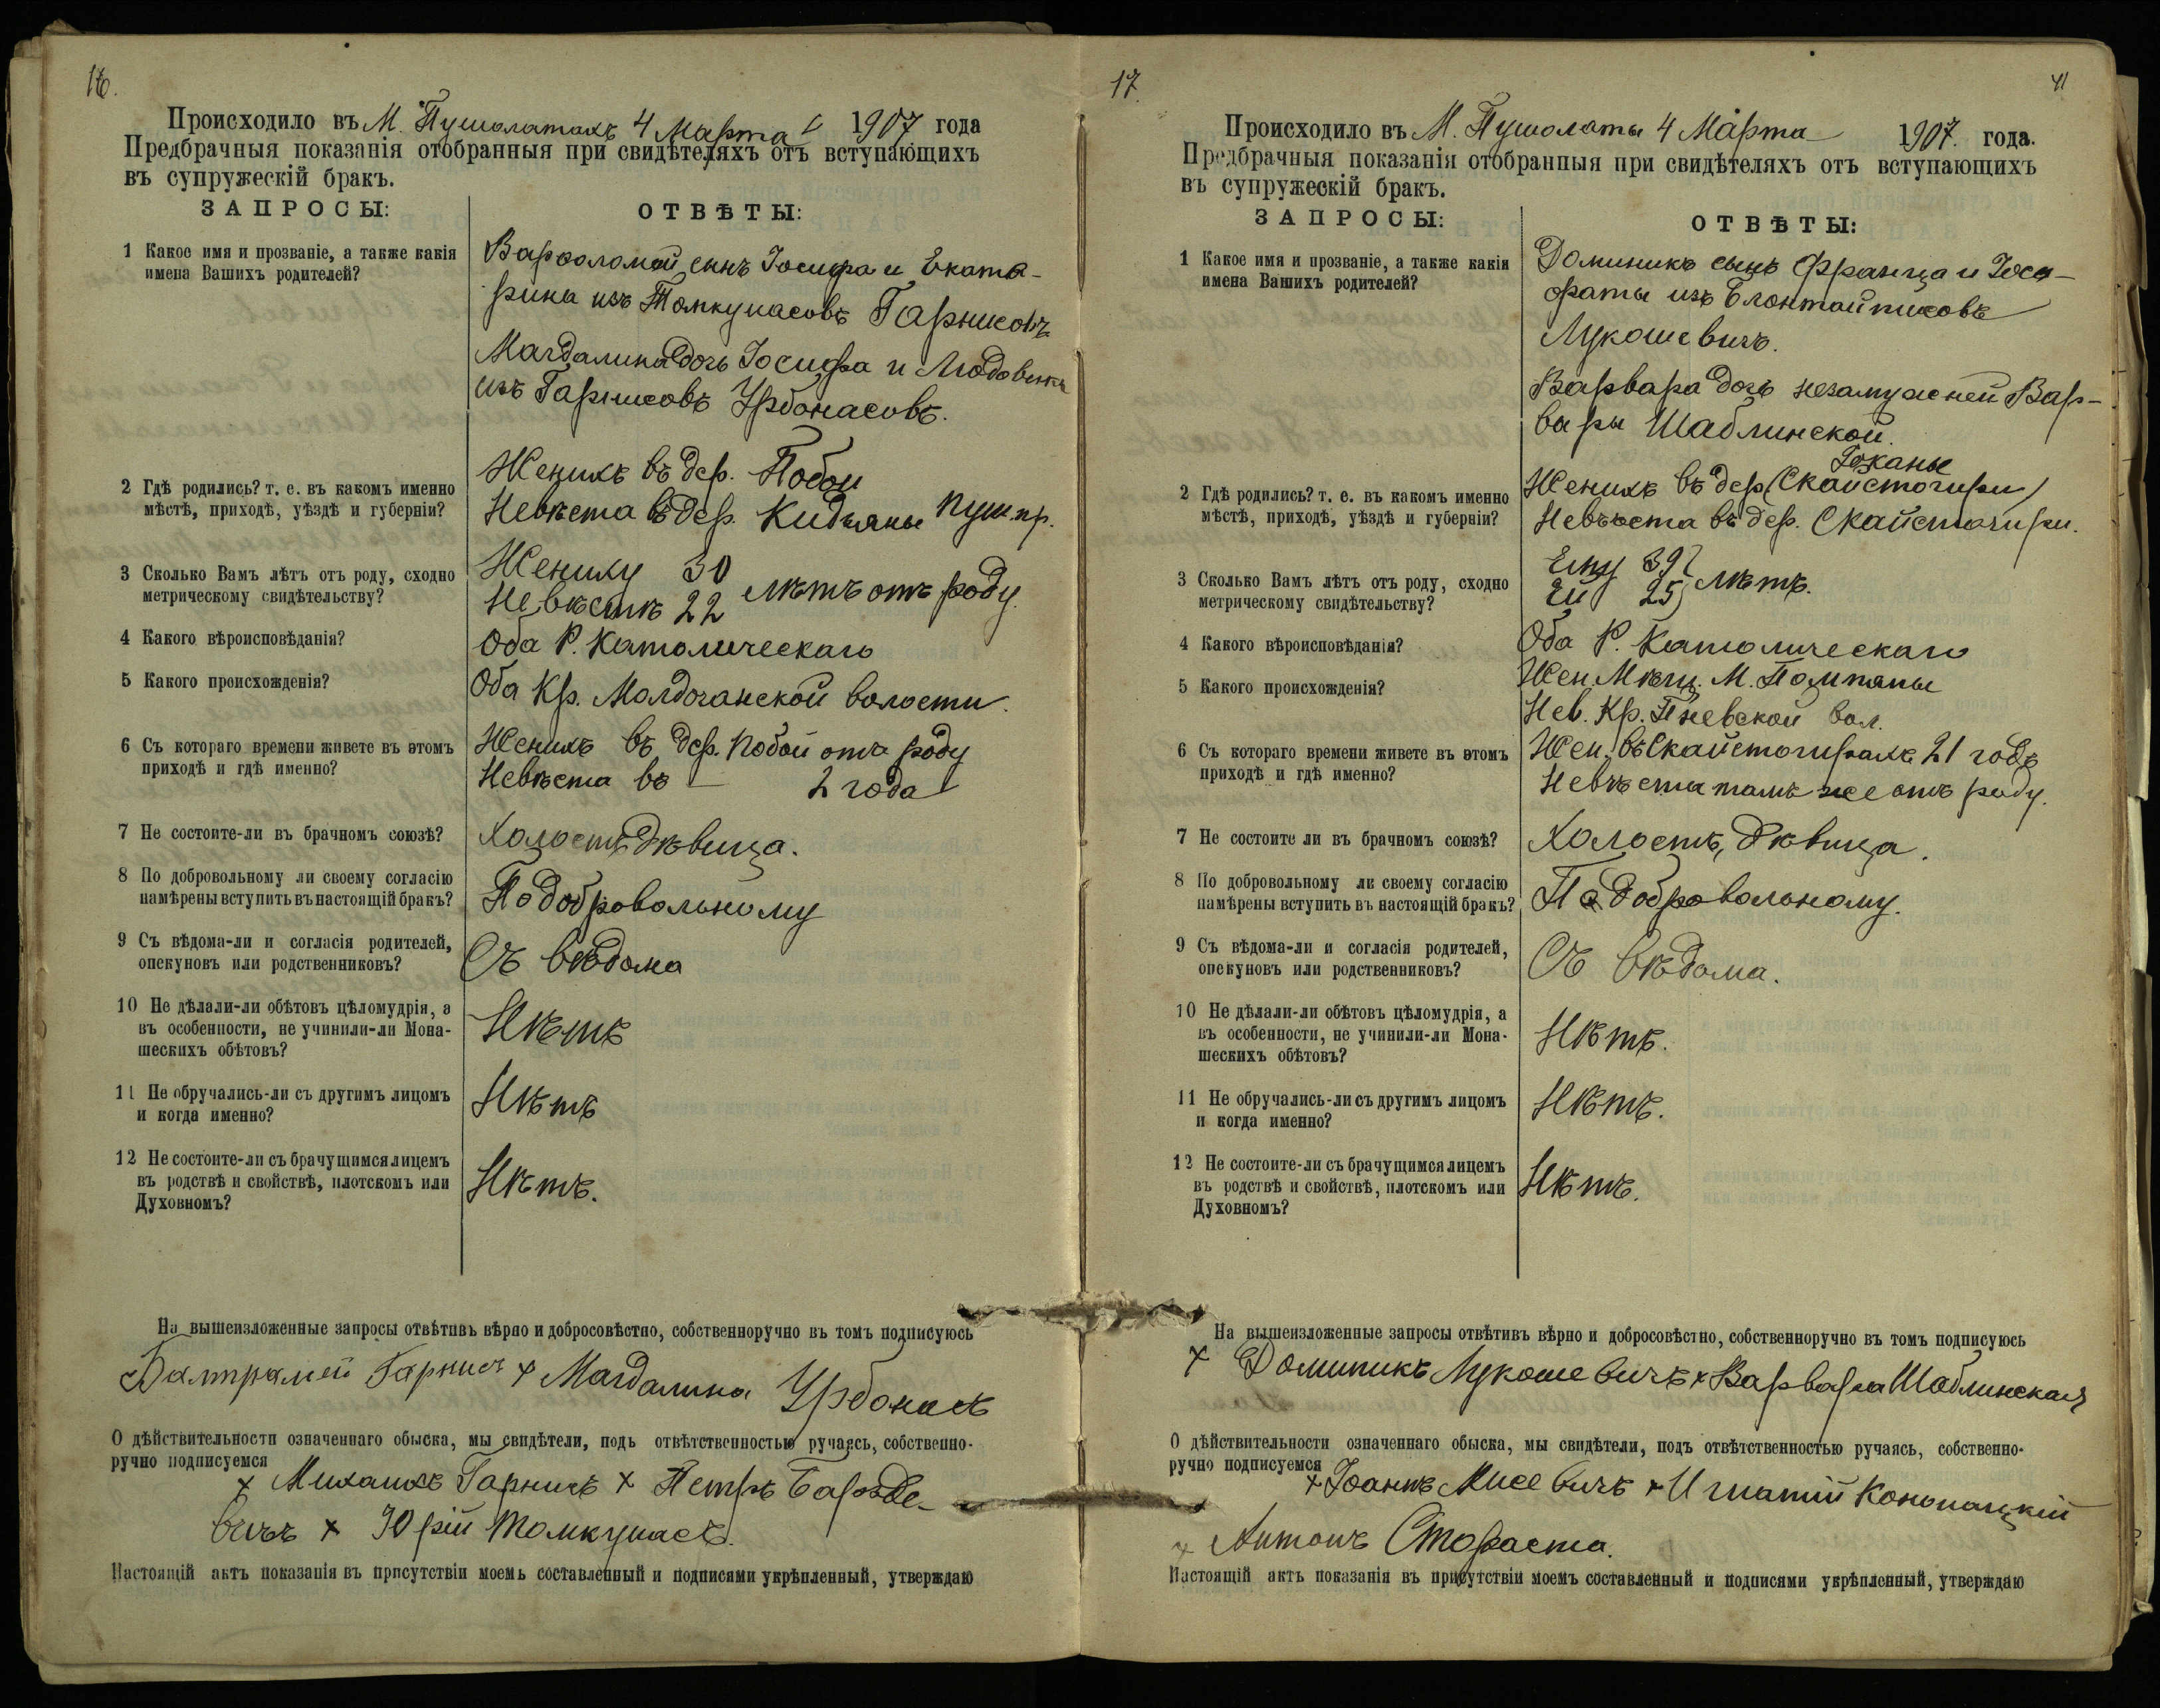 16.
Происходило въ М. Пушолатахъ 4 Марта 1907 года
Предбрачныя показанія отобранныя при свидѣтеляхъ отъ вступающихъ
въ супружескій бракъ.
ЗАПРОСЫ:
ОТВѢТЫ:
1 Какое имя и прозваніе, а также какія
имена Вашихъ родителей?
Варѳоломей сынъ Іосифа и Екате-
рины изъ Томкунасовъ Гарнисовъ
Магдалина дочь Іосифа и Людовики
изъ Гарнисовъ Урбонасовъ.
2 Гдѣ родились? т. е. въ какомъ именно
мѣстѣ, приходѣ, уѣздѣ и губерніи?
Женихъ въ дер. Побои
Невѣста въ дер. Кидзяны Пуш. пр.
3 Сколько Вамъ лѣтъ отъ роду, сходно
метрическому свидѣтельству?
Жениху 30
Невѣстѣ 22 лѣтъ отъ роду.
4 Какого вѣроисповѣданія?
Оба Р. Католическаго
5 Какого происхожденія?
Оба Кр. Молдочанской волости.
6 Съ котораго времени живете въ этомъ
приходѣ и гдѣ именно?
Женихъ въ дер. Побои отъ роду
Невѣста въ — 2 года
7 Не состоите-ли въ брачномъ союзѣ?
Холостъ, дѣвица.
8 По добровольному ли своему согласію
намѣрены вступить въ настоящій бракъ?
По добровольному
9 Съ вѣдома-ли и согласія родителей,
опекуновъ или родственниковъ?
Съ вѣдома
10 Не дѣлали-ли обѣтовъ цѣломудрія, а
въ особенности, не учинили-ли Мона-
шескихъ обѣтовъ?
Нѣтъ
11 Не обручались-ли съ другимъ лицомъ
и когда именно?
Нѣтъ
12 Не состоите-ли съ брачущимся лицемъ
въ родствѣ и свойствѣ, плотскомъ или
Духовномъ?
Нѣтъ.
На вышеизложенные запросы отвѣтивъ вѣрно и добросовѣстно, собственноручно въ томъ подписуюсь
Балтрамей Гарнись + Магдалина Урбонасъ
О дѣйствительности означеннаго обыска, мы свидѣтели, подъ отвѣтственностью ручаясь, собственно-
ручно подписуемся
+ Михаилъ Гарнисъ + Петръ Барзде-
вичъ + Юрій Томкунасъ.
Настоящій актъ показанія въ присутствіи моемъ составленный и подписями укрѣпленный, утверждаю
17.
41
Происходило въ М. Пушолаты 4 Марта 1907. года.
Предбрачныя показанія отобранныя при свидѣтеляхъ отъ вступающихъ
въ супружескій бракъ.
ЗАПРОСЫ:
ОТВѢТЫ:
1 Какое имя и прозваніе, а также какія
имена Вашихъ родителей?
Доминикъ сынъ Франца и Іоса-
фаты изъ
Лукошевичъ.
Варвара дочь незамужней Вар-
вары Шаблинской.
2 Гдѣ родились? т. е. въ какомъ именно
мѣстѣ, приходѣ, уѣздѣ и губерніи?
Женихъ въ дер. (Скайстогири)
Невѣста въ дер. Скайстогири.
3 Сколько Вамъ лѣтъ отъ роду, сходно
метрическому свидѣтельству?
Ему 39
Ей 25 лѣтъ.
4 Какого вѣроисповѣданія?
Оба Р. Католическаго
5 Какого происхожденія?
Жен. Мѣщ. М. Помпяны
Нев. Кр. Пневской вол.
6 Съ котораго времени живете въ этомъ
приходѣ и гдѣ именно?
Жен. въ Скайстогирахъ 21 годъ
Невѣста тамъ же отъ роду.
7 Не состоите ли въ брачномъ союзѣ?
Холостъ, дѣвица.
8 По добровольному ли своему согласію
намѣрены вступить въ настоящій бракъ?
По добровольному.
9 Съ вѣдома-ли и согласія родителей,
опекуновъ или родственниковъ?
Съ вѣдома.
10 Не дѣлали-ли обѣтовъ цѣломудрія, а
въ особенности, не учинили-ли Мона-
шескихъ обѣтовъ?
Нѣтъ.
11 Не обручались-ли съ другимъ лицомъ
и когда именно?
Нѣтъ.
12 Не состоите-ли съ брачущимся лицемъ
въ родствѣ и свойствѣ, плотскомъ или
Духовномъ?
Нѣтъ.
На вышеизложенные запросы отвѣтивъ вѣрно и добросовѣстно, собственноручно въ томъ подписуюсь
+ Доминикъ Лукошевичъ + Варвара Шаблинская
О дѣйствительности означеннаго обыска, мы свидѣтели, подъ отвѣтственностью ручаясь, собственно-
ручно подписуемся
+ Іоаннъ Мисевичъ + Игнатій Конопацкій
+ Антонъ Стораста.
Настоящій актъ показанія въ присутствіи моемъ составленный и подписями укрѣпленный, утверждаю